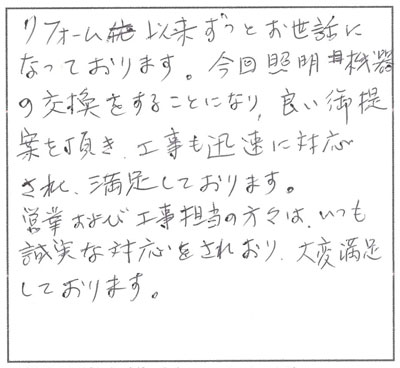 リフォーム以来ずっとお世話に
なっております。今回照明機器
の交換をすることになり、良い御提
案を頂き、工事も迅速に対応
され、満足しております。
営業および工事担当の方々は、いつも
誠実な対応をされており、大変満足
しております。